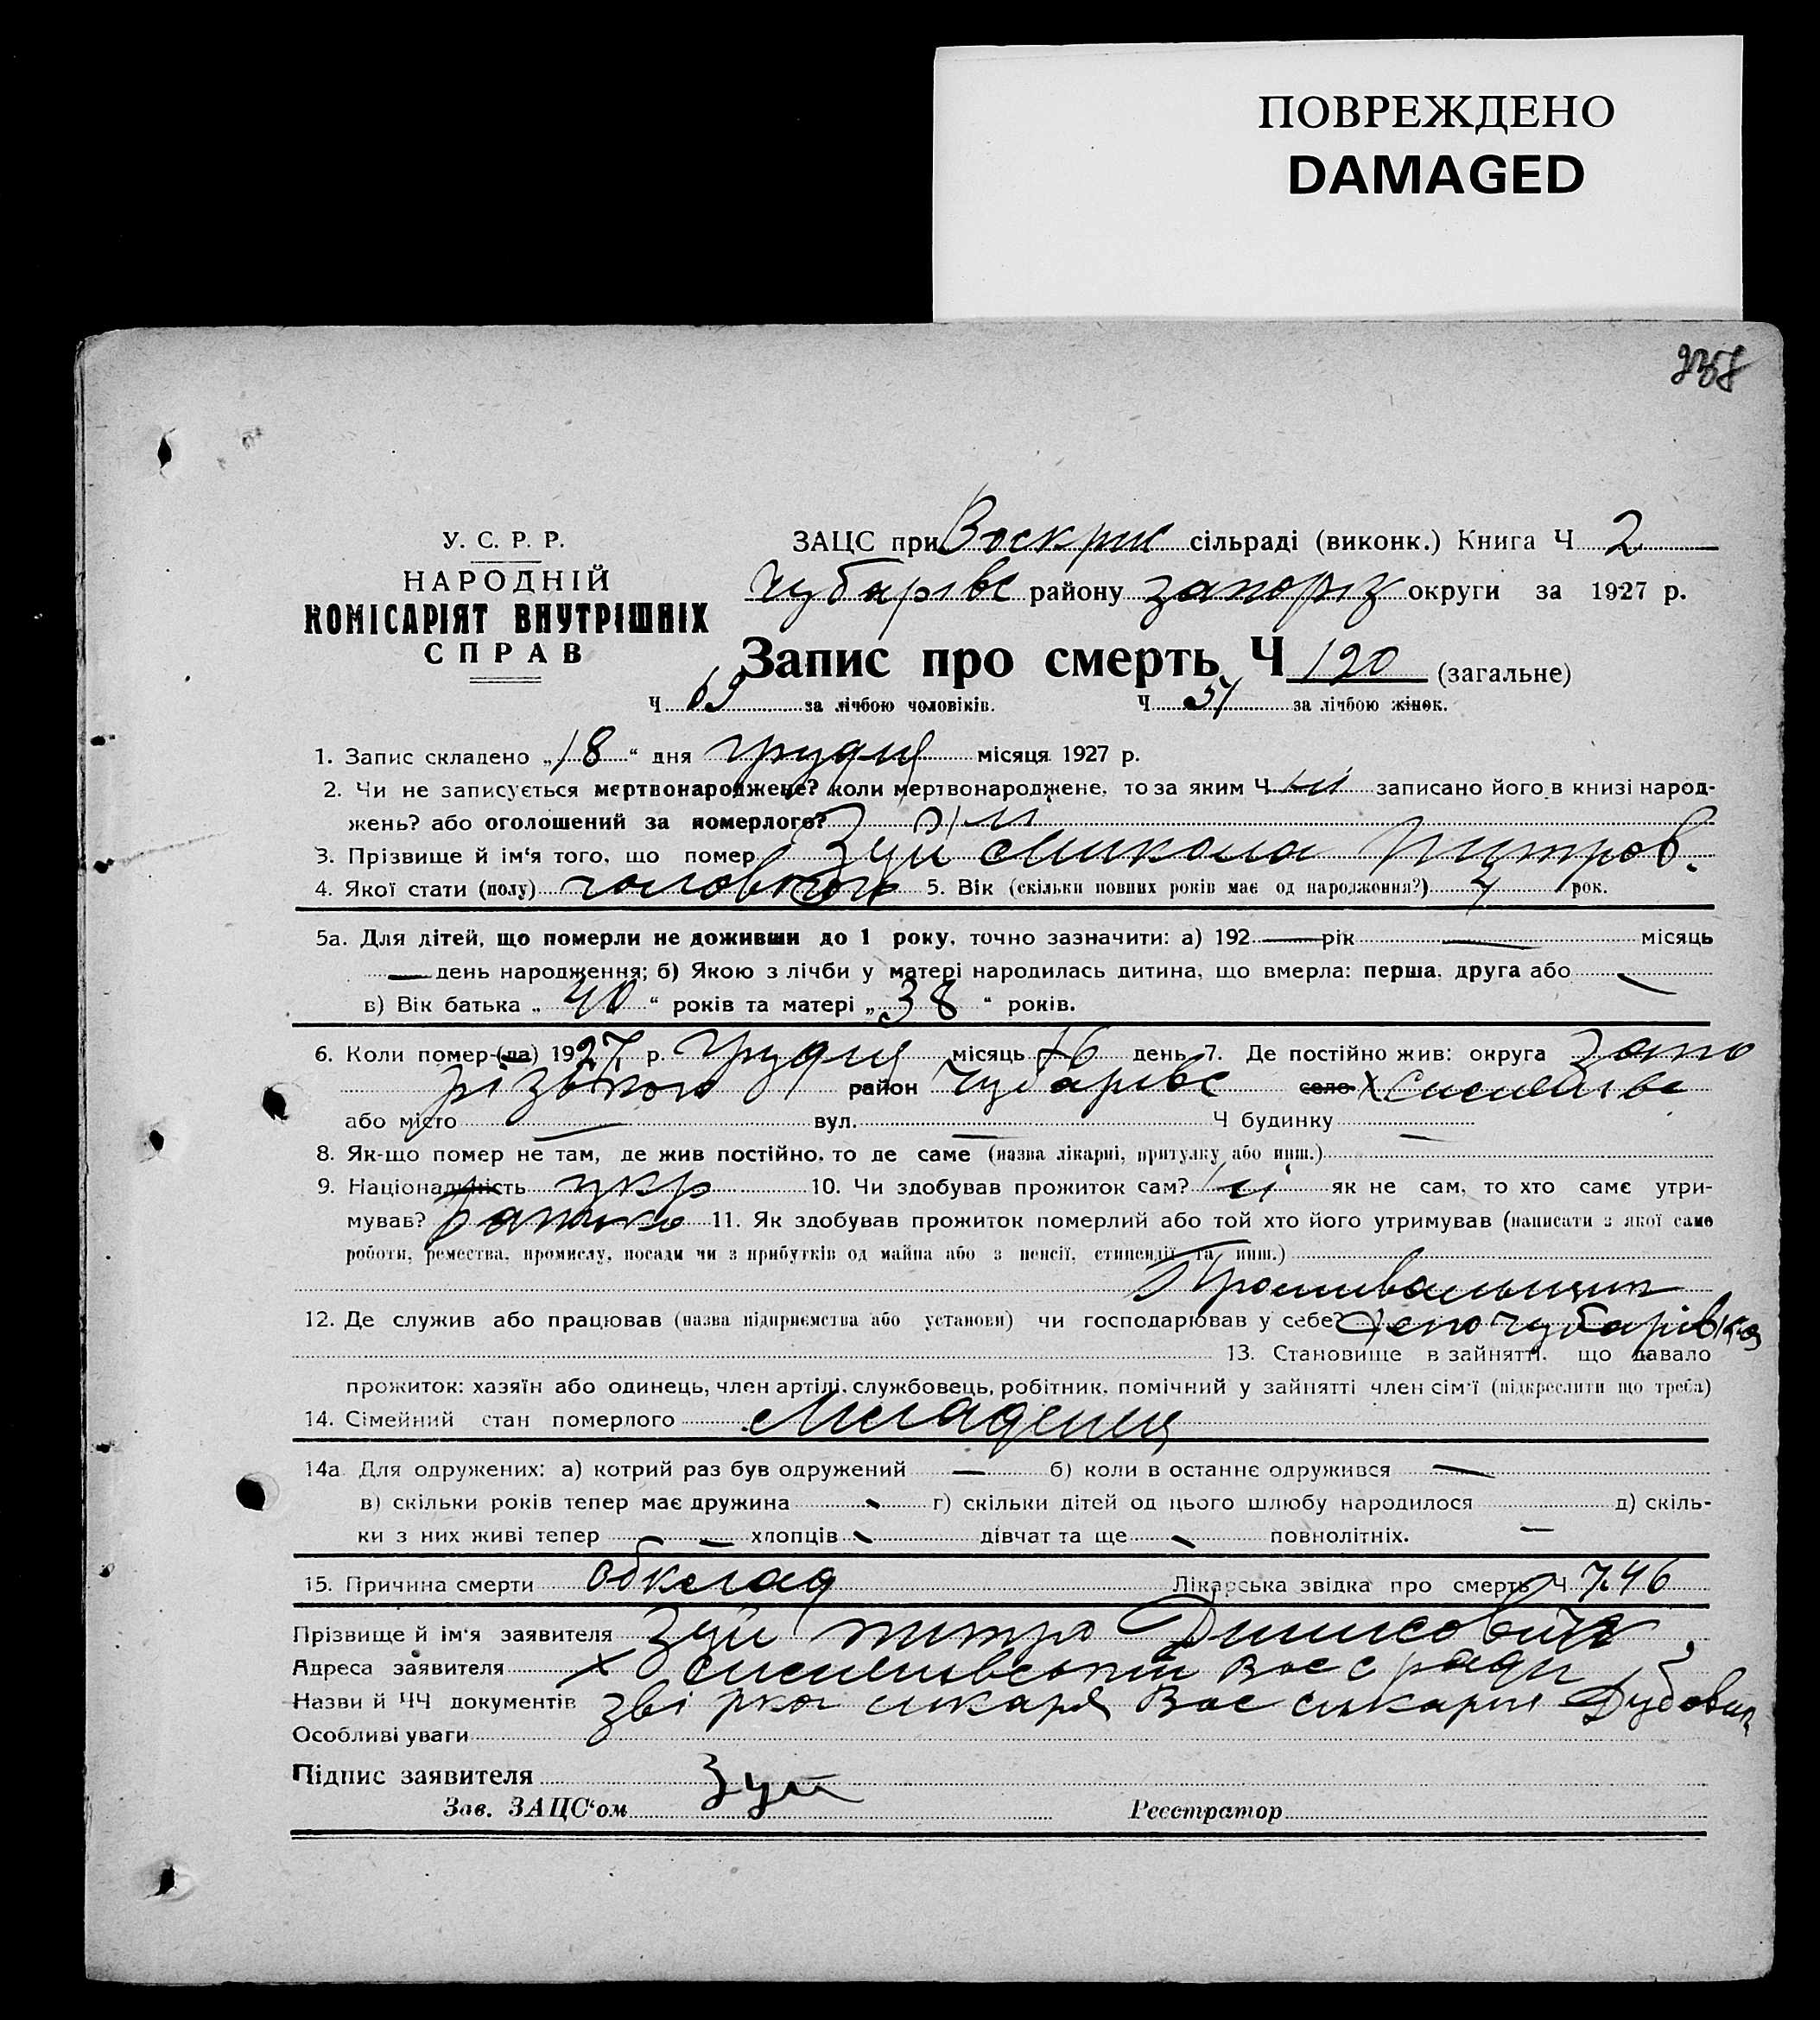 ПОВРЕЖДЕНО
DAMAGED
У. С. Р. Р.
НАРОДНІЙ
КОМІСАРІЯТ ВНУТРІШНІХ
СПРАВ
ЗАЦС при Воскрис сільраді (виконк.) Книга Ч 2
Чубарівс району запоріз округи за 1927 р.
Запис про смерть Ч 120 (загальне)
Ч 69 за лічбою чоловіків. Ч 51 за лічбою жінок.
1. Запис складено „18“ дня грудня місяця 1927 р.
2. Чи не записується мертвонароджене? коли мертвонароджене, то за яким Ч записано його в книзі народ-
жень? або оголошений за померлого?
3. Прізвище й ім‘я того, що помер Зуй Микола Питров.
4. Якої стати (полу) чоловічої 5. Вік (скільки повних років має од народження?) рок.
5а. Для дітей, що померли не доживши до 1 року, точно зазначити: а) 192 — рік — місяць
— день народження; б) Якою з лічби у матері народилась дитина, що вмерла: перша, друга або —
в) Вік батька „40“ років та матері „38“ років.
6. Коли помер-(ла) 1927 р. Грудня місяць 16 день 7. Де постійно жив: округа Запо
різького район Чубарівс село Х
або місто — вул. — Ч будинку —
8. Як-що помер не там, де жив постійно, то де саме (назва лікарні, притулку або инш.)
9. Національність укр 10. Чи здобував прожиток сам? ні як не сам, то хто саме утри-
мував? батько 11. Як здобував прожиток померлий або той хто його утримував (написати з якої само
роботи, ремества, промислу, посади чи з прибутків од майна або з пенсії, стипендії та инш.)
12. Де служив або працював (назва підприємства або установи) чи господарював у себе? Депо Чубарівка
13. Становище в зайнятті, що давало
прожиток: хазяїн або одинець, член артілі, службовець, робітник, помічний у зайнятті член сім‘ї (підкреслити що треба)
14. Сімейний стан померлого Младенец
14а Для одружених: а) котрий раз був одружений — б) коли в останнє одружився —
в) скільки років тепер має дружина — г) скільки дітей од цього шлюбу народилося д) скіль-
ки з них живі тепер — хлопців — дівчат та ще — повнолітніх. —
15. Причина смерти обклад Лікарська звідка про смерть Ч 746
Прізвище й ім‘я заявителя Зуй Питро Динисович
Адреса заявителя Х Вос с ради
Назви й ЧЧ документів звідка ликаря Вос ликарні
Особливі уваги
Підпис заявителя Зуй
Зав. ЗАЦС‘ом Реєстратор